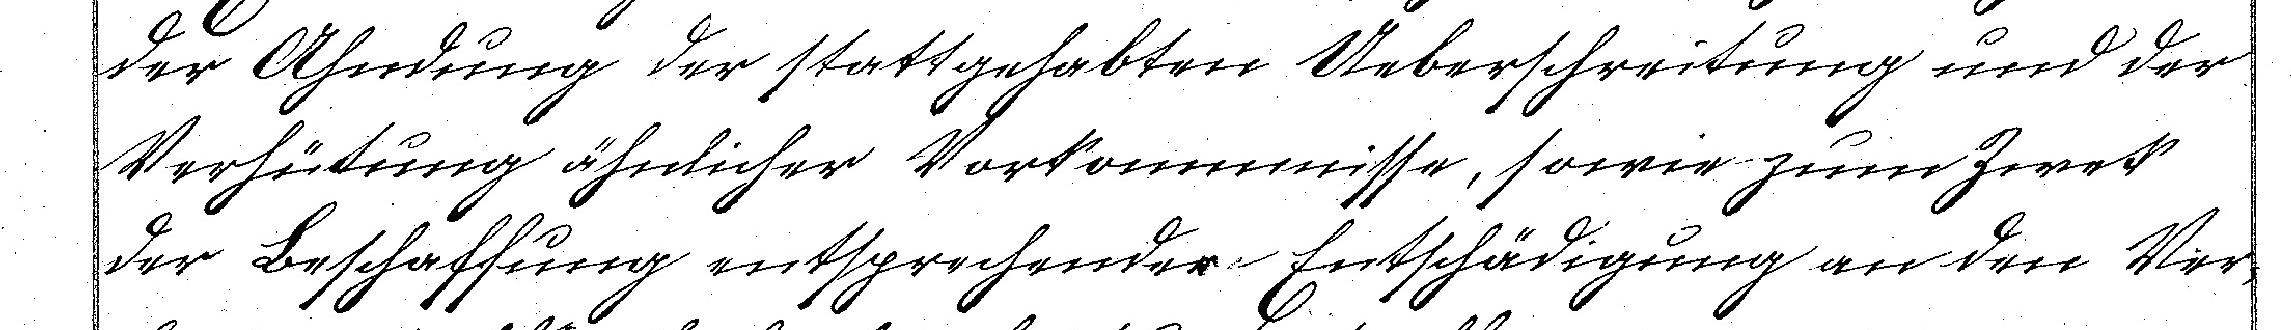 der Ahndung der stattgehabten Ueberschreitung und der
Verhütung ähnlicher Vorkommnisse, sowie zum Zwek
der Beschaffung entsprechender Entschädigung an den Ver-